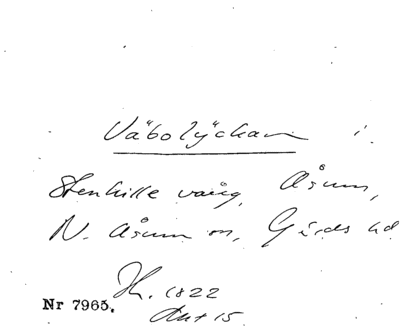 Väbolÿckan i
Stenkille vång, Åsum,
N. Åsum sn, Gärds hd
H. 1822
Akt 15
Nr 7965.